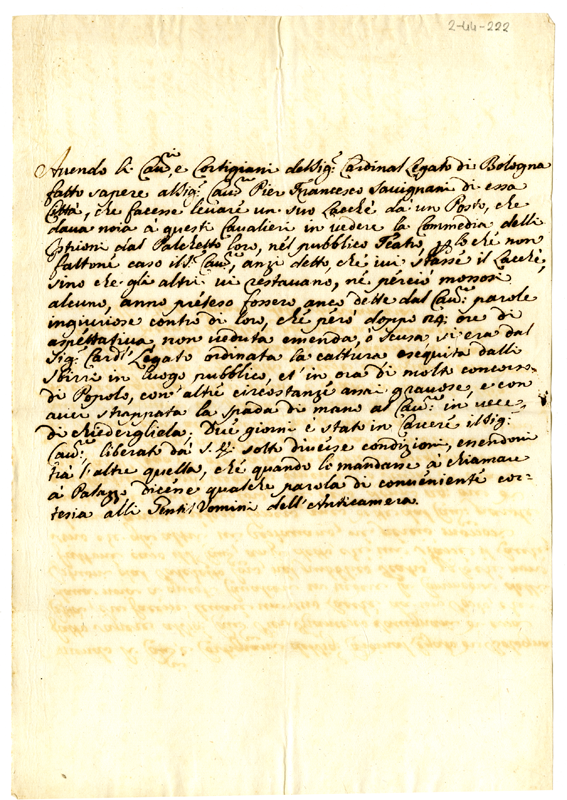 2-44-222
Avendo li Cau.ri e Cortigiani del Sig.r Cardinal Legato di Bologna
fatto sapere al Sig.r Cau.re Pier Francesco Savignani di essa
Città, che facesse levare un suo Lacchè da un Posto, che
dava noia a questi Cavalieri in vedere la Commedia delli
Istrioni dal Palchetto loro, nel pubblico Teatro, che non
fattone caso il S.r Cau.re, anzi detto, che ivi stasse il Lacchè,
sino che gli altri vi restavano, nè perciò mossosi
alcuno, anno preteso fossero anco dette dal Cau.re parole
ingiuriose contro di loro, che però doppo 24: ore di
aspettativa, non veduta emenda, ò scusa, si era dal
Sig.r Card.l Legato ordinata la cattura eseguita dalli
sbirri in luogo pubblico, et in ora di molto concorso
di Popolo, con altre circostanze assai gravose, e con
aver strappata la spada di mano al Cau.re in vece
di chiedergliela. Due giorni è stato in Carcere il Sig.r
Cau.re liberato dà S. E. sotto diverse condizioni, essendovi
trà l'altre quella, che quando lo mandasse à chiamare
à Palazzo dicesse qualche parola di conveniente cor=
tesia alli Gentil Uomini dell'Anticamera.